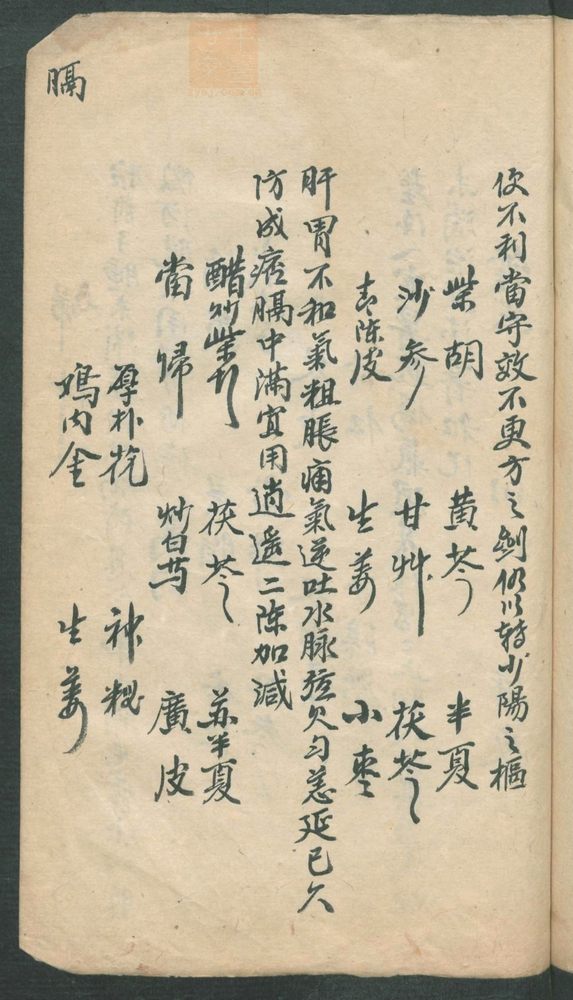 便不利當守效不更方之劍仍以轉少陽之樞
柴胡 黃芩 半夏
沙参 甘艸 茯苓
青陳皮 生姜 小棗
肝胃不和氣粗脹痛氣逆吐水脉弦欠勻恙延已久
防成痞膈中滿宜用逍遥二陈加減
醋炒柴胡 茯苓 苏半夏
當歸 炒白芍 廣皮
厚朴 神粬
鳮内金 生姜
膈